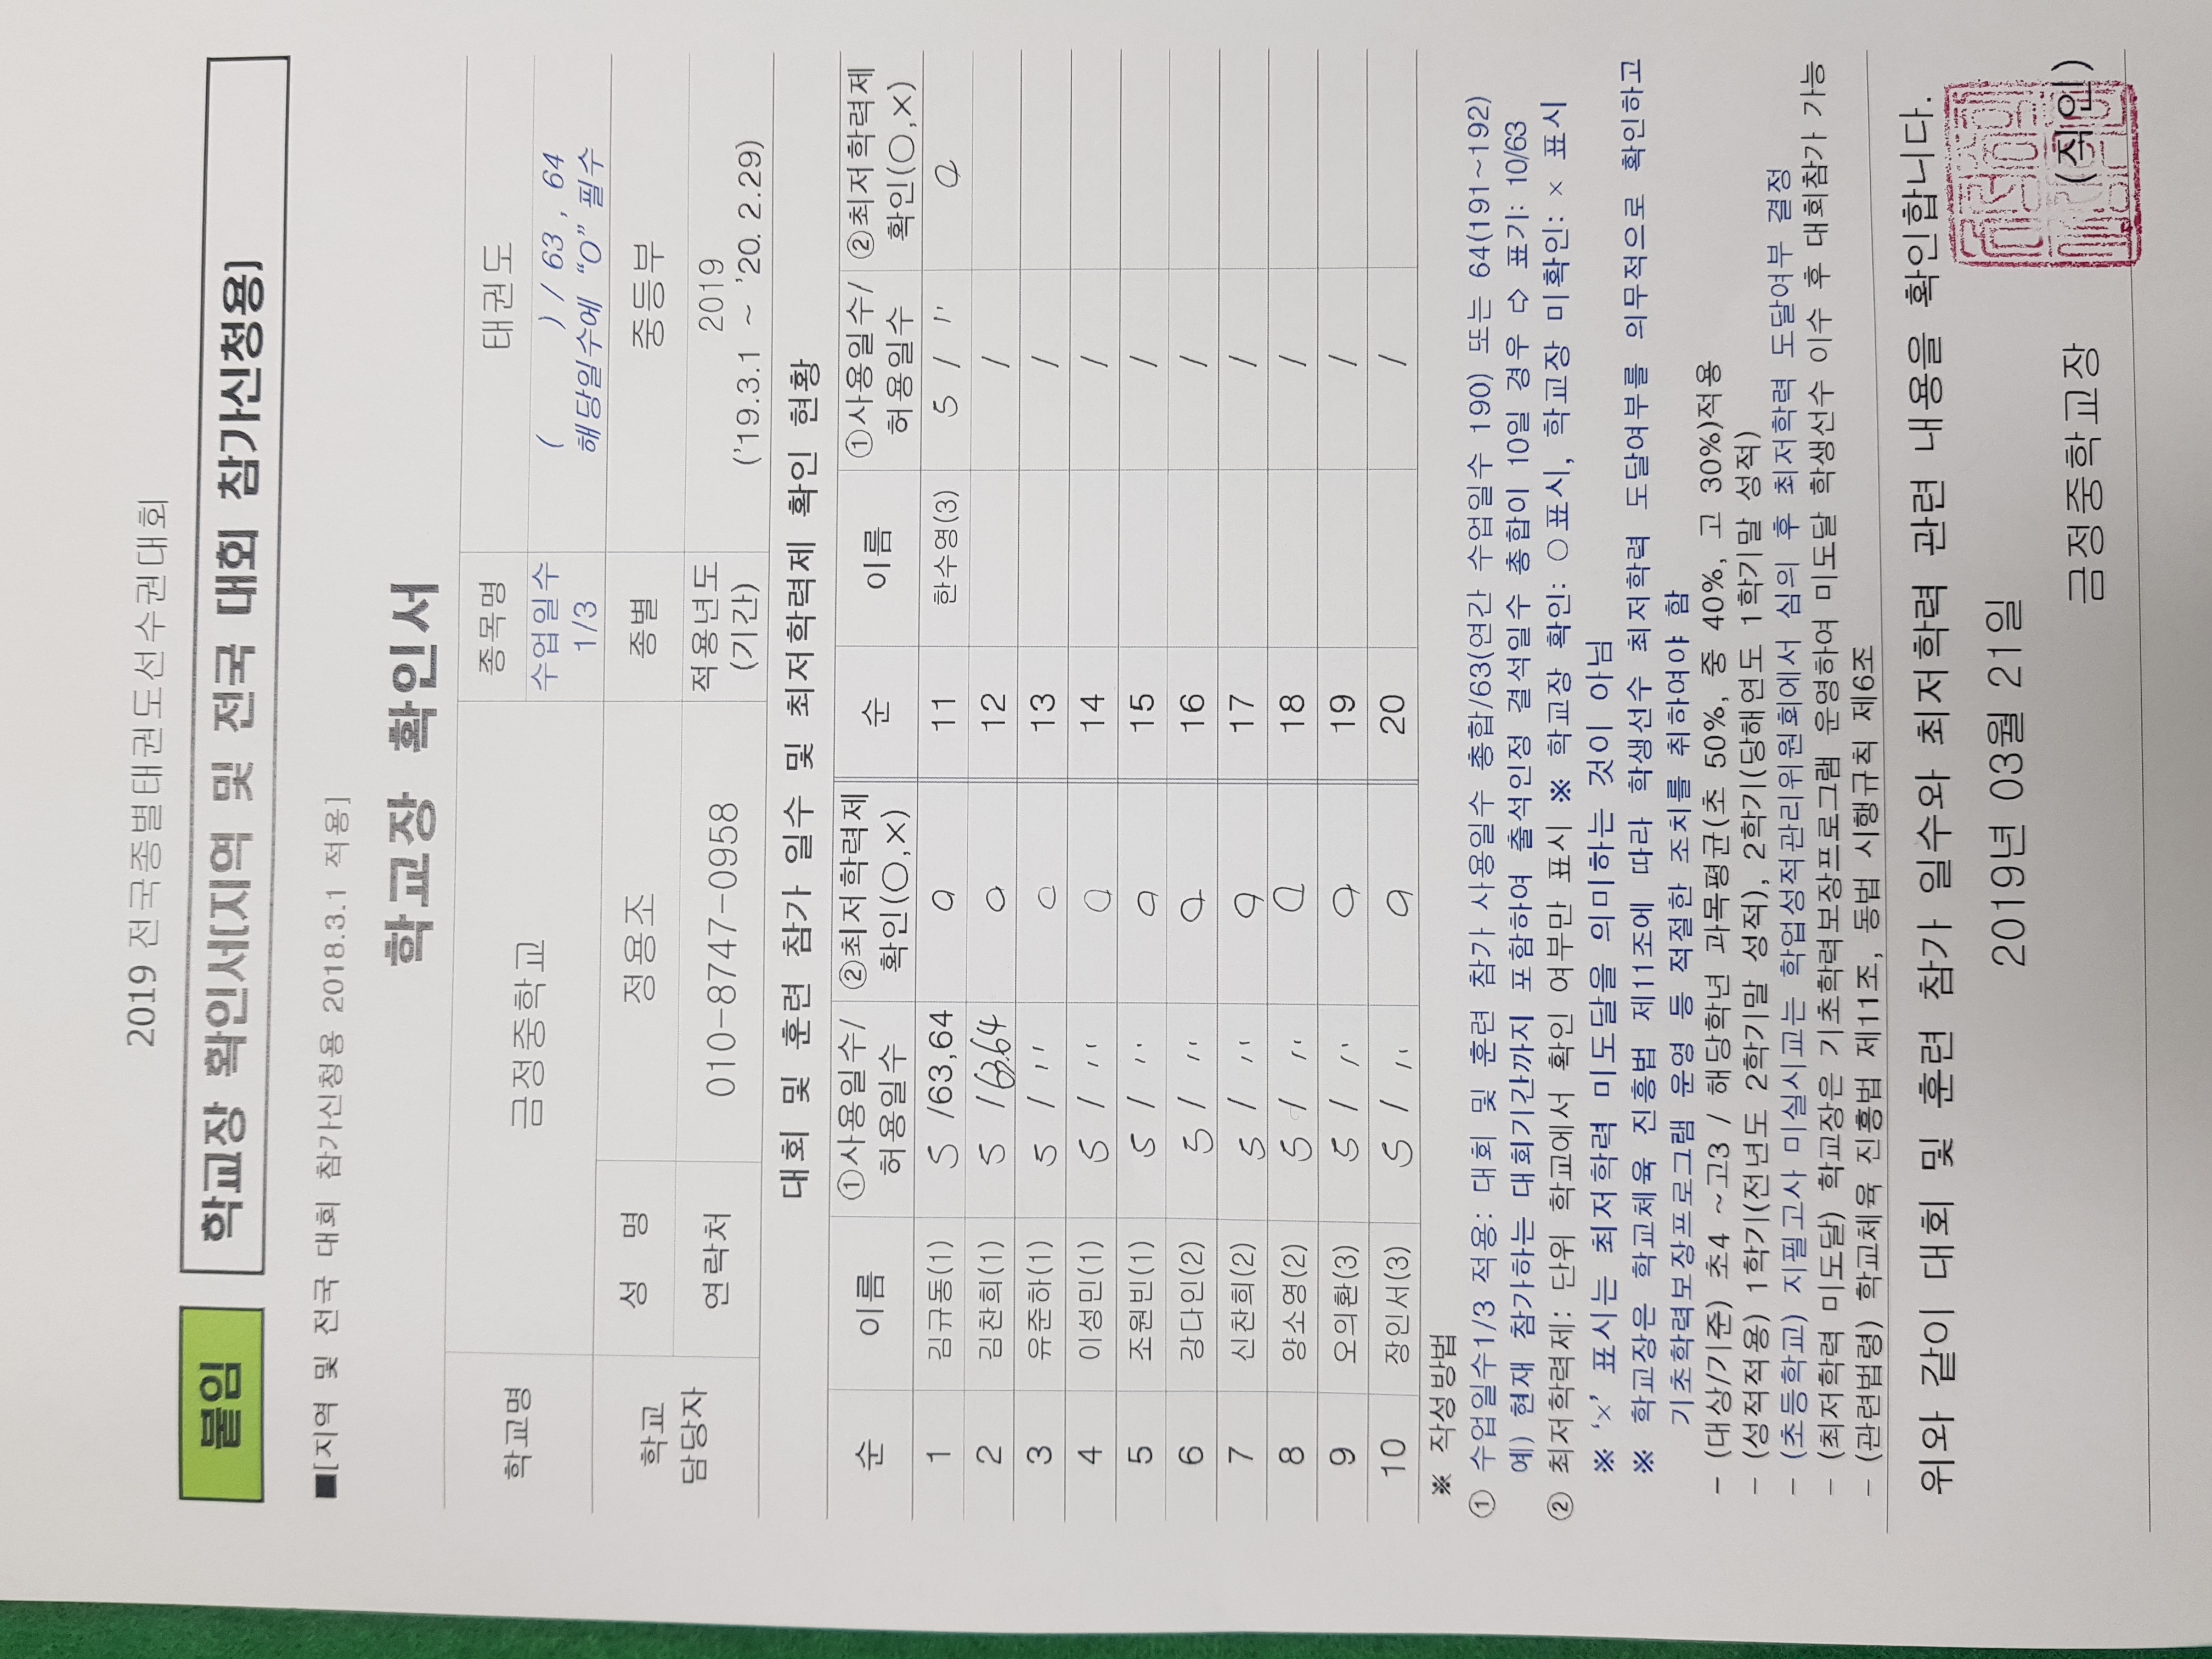 2019 전국종별태권도선수권대회
붙임 학교장 확인서[지역 및 전국 대회 참가신청용]
■[지역 및 전국 대회 참가신청용 2018.3.1 적용]
학교장 확인서
학교명 금정중학교 종목명 태권도
수업일수 1/3 ( ) / 63 , 64
해당일수에 “O” 필수
학교 담당자 성 명 정용조 종별 중등부
연락처 010-8747-0958 적용년도 (기간) 2019
('19.3.1 ~ '20. 2.29)
대회 및 훈련 참가 일수 및 최저학력제 확인 현황
순 이름 ①사용일수/허용일수 ②최저학력제 확인(○,×) 순 이름 ①사용일수/허용일수 ②최저학력제 확인(○,×)
1 김규동(1) 5 /63,64 O 11 한수영(3) 5 / " O
2 김찬희(1) 5 / 63.64 O 12 /
3 유준하(1) 5 / " O 13 /
4 이성민(1) 5 / " O 14 /
5 조원빈(1) 5 / " O 15 /
6 강다인(2) 5 / " O 16 /
7 신찬희(2) 5 / " O 17 /
8 양소영(2) 5 / " O 18 /
9 오의환(3) 5 / " O 19 /
10 장인서(3) 5 / " O 20 /
※ 작성방법
① 수업일수1/3 적용: 대회 및 훈련 참가 사용일수 총합/63(연간 수업일수 190) 또는 64(191~192)
예) 현재 참가하는 대회기간까지 포함하여 출석인정 결석일수 총합이 10일 경우 ⇨ 표기: 10/63
② 최저학력제: 단위 학교에서 확인 여부만 표시 ※ 학교장 확인: ○표시, 학교장 미확인: × 표시
※ ‘×’ 표시는 최저학력 미도달을 의미하는 것이 아님
※ 학교장은 학교체육 진흥법 제11조에 따라 학생선수 최저학력 도달여부를 의무적으로 확인하고
기초학력보장프로그램 운영 등 적절한 조치를 취하여야 함
- (대상/기준) 초4 ~고3 / 해당학년 과목평균(초 50%, 중 40%, 고 30%)적용
- (성적적용) 1학기(전년도 2학기말 성적), 2학기(당해연도 1학기말 성적)
- (초등학교) 지필고사 미실시교는 학업성적관리위원회에서 심의 후 최저학력 도달여부 결정
- (최저학력 미도달) 학교장은 기초학력보장프로그램 운영하여 미도달 학생선수 이수 후 대회참가 가능
- (관련법령) 학교체육 진흥법 제11조, 동법 시행규칙 제6조
위와 같이 대회 및 훈련 참가 일수와 최저학력 관련 내용을 확인합니다.
2019년 03월 21일
금정중학교장 (직인)